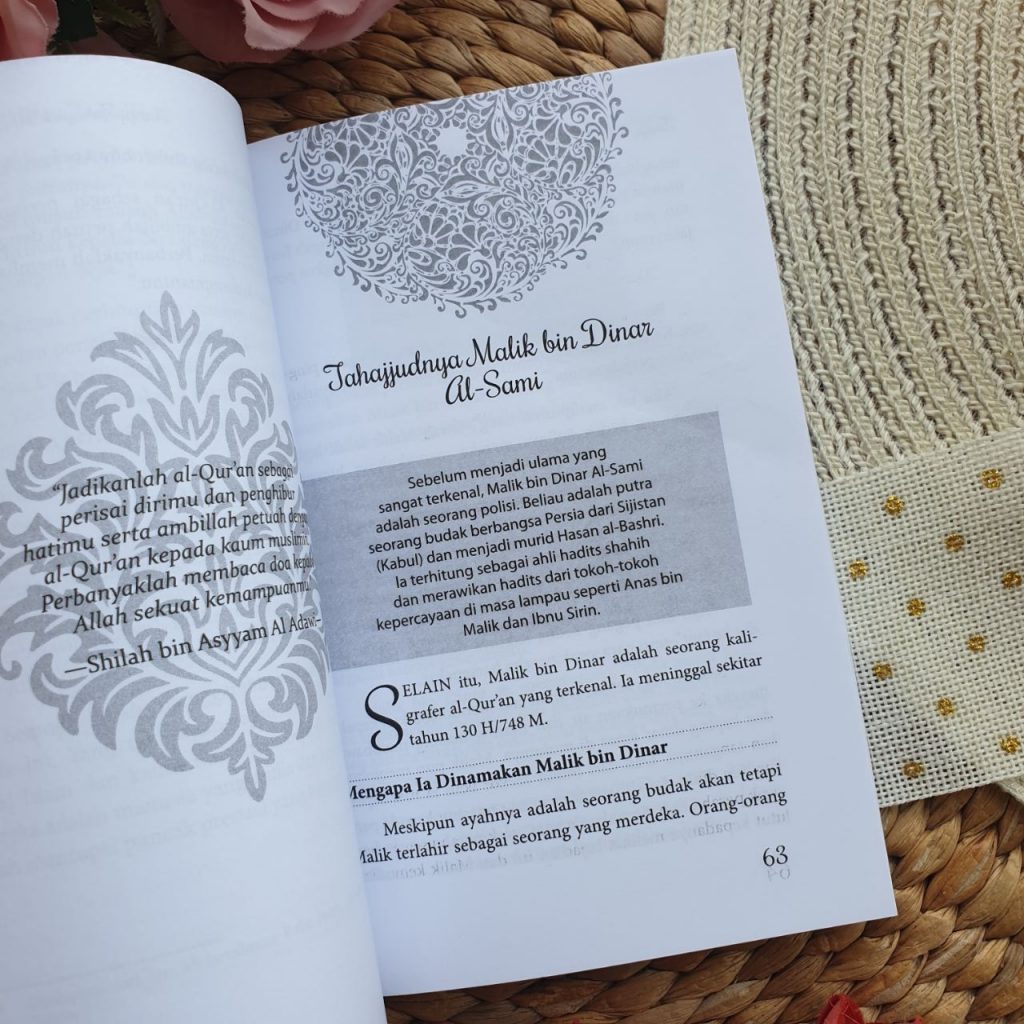 “Jadikanlah al-Qur’an sebagai
perisai dirimu dan penghibur
hatimu serta ambillah petuah
al-Qur’an kepada kaum
Perbanyaklah membaca doa
Allah sekuat kemampuanmu
—Shilah bin Asyyam Al Adawi—
Tahajjudnya Malik bin Dinar
Al-Sami
Sebelum menjadi ulama yang
sangat terkenal, Malik bin Dinar Al-Sami
adalah seorang polisi. Beliau adalah putra
seorang budak berbangsa Persia dari Sijistan
(Kabul) dan menjadi murid Hasan al-Bashri.
Ia terhitung sebagai ahli hadits shahih
dan merawikan hadits dari tokoh-tokoh
kepercayaan di masa lampau seperti Anas bin
Malik dan Ibnu Sirin.
SELAIN itu, Malik bin Dinar adalah seorang kali-
grafer al-Qur’an yang terkenal. Ia meninggal sekitar
tahun 130 H/748 M.
Mengapa Ia Dinamakan Malik bin Dinar
Meskipun ayahnya adalah seorang budak akan tetapi
Malik terlahir sebagai seorang yang merdeka. Orang-orang
63